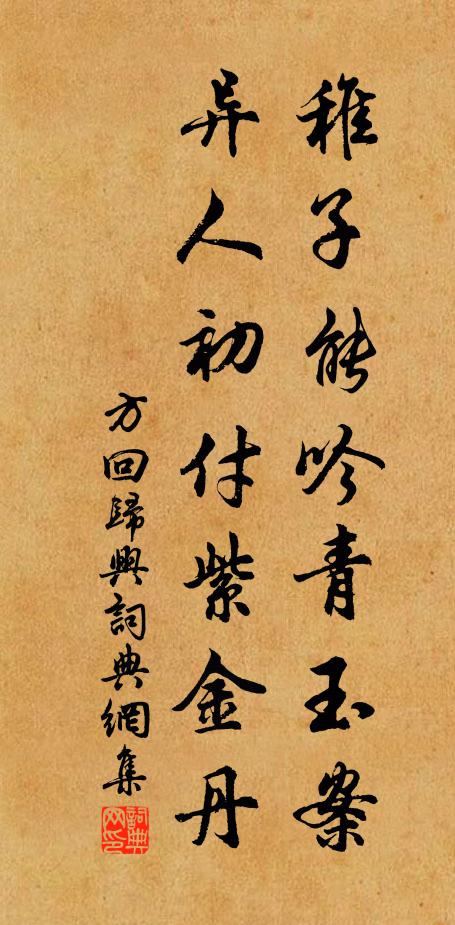 稚子能吟青玉案
异人初付紫金丹
方回歸興詞典網集
詞典网印